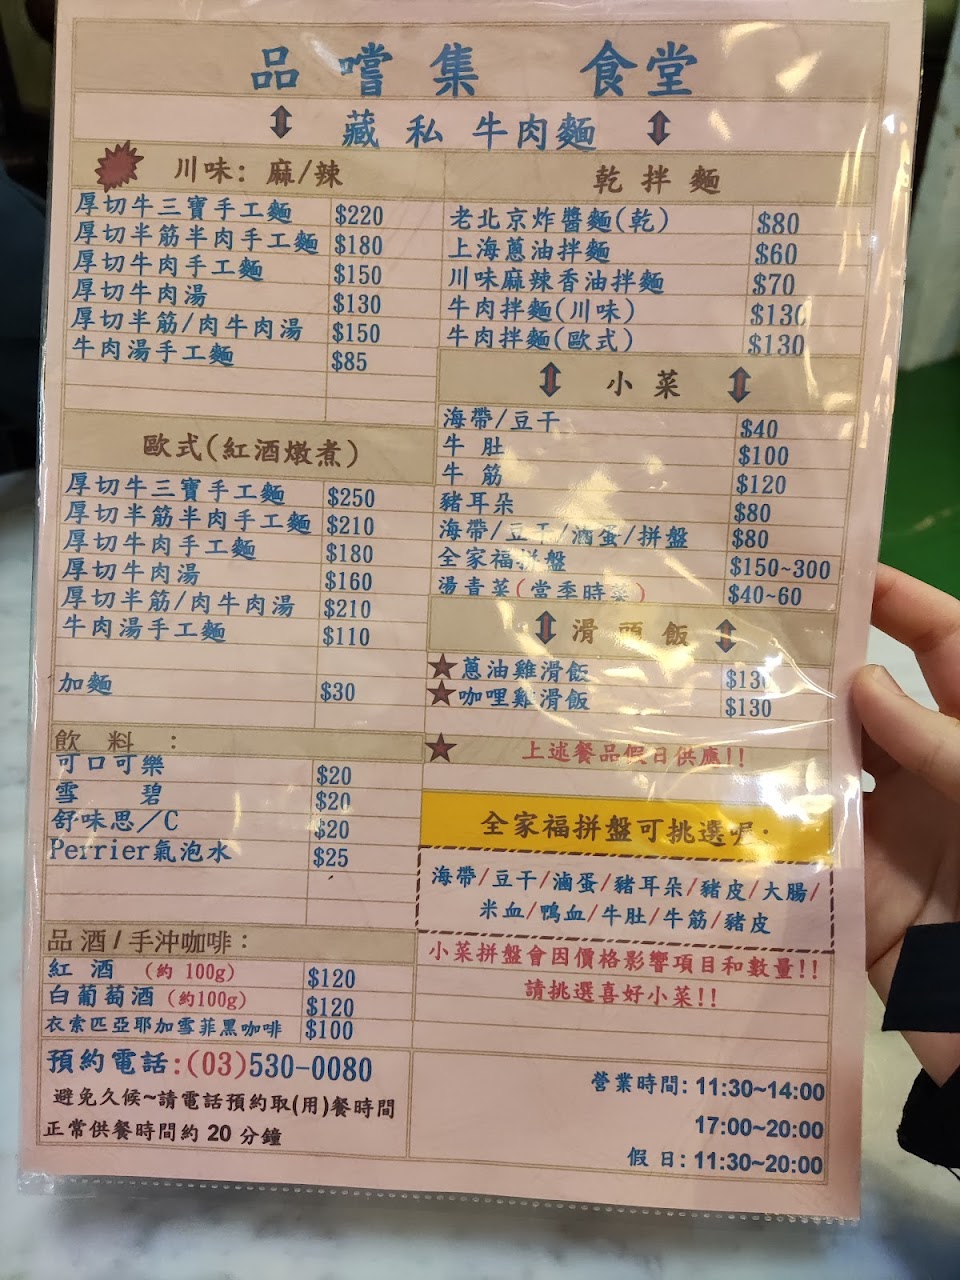 品嚐集 食堂
藏私牛肉麵
川味: 麻/辣
厚切牛三寶手工麵 $220
厚切半筋半肉手工麵 $180
厚切牛肉手工麵 $150
厚切牛肉湯 $130
厚切半筋/肉牛肉湯 $150
牛肉湯手工麵 $85
歐式(紅酒燉煮)
厚切牛三寶手工麵 $250
厚切半筋半肉手工麵 $210
厚切牛肉手工麵 $180
厚切牛肉湯 $160
厚切半筋/肉牛肉湯 $210
牛肉湯手工麵 $110
加麵 $30
飲料:
可口可樂 $20
雪碧 $20
舒味思/C $20
Perrier氣泡水 $25
品酒/手沖咖啡:
紅酒 (約 100g) $120
白葡萄酒 (約100g) $120
衣索匹亞耶加雪菲黑咖啡 $100
預約電話:(03)530-0080
避免久候~請電話預約取(用)餐時間
正常供餐時間約 20 分鐘
乾拌麵
老北京炸醬麵(乾) $80
上海蔥油拌麵 $60
川味麻辣香油拌麵 $70
牛肉拌麵(川味) $130
牛肉拌麵(歐式) $130
小菜
海帶/豆干 $40
牛肚 $100
牛筋 $120
豬耳朵 $80
海帶/豆干/滷蛋/拼盤 $80
全家福拼盤 $150~300
湯青菜(當季時菜) $40~60
滑頭飯
★蔥油雞滑飯 $130
★咖哩雞滑飯 $130
★ 上述餐品假日供應!!
全家福拼盤可挑選呢:
海帶/豆干/滷蛋/豬耳朵/豬皮/大腸/
米血/鴨血/牛肚/牛筋/豬皮
小菜拼盤會因價格影響項目和數量!!
請挑選喜好小菜!!
營業時間: 11:30~14:00
17:00~20:00
假日: 11:30~20:00